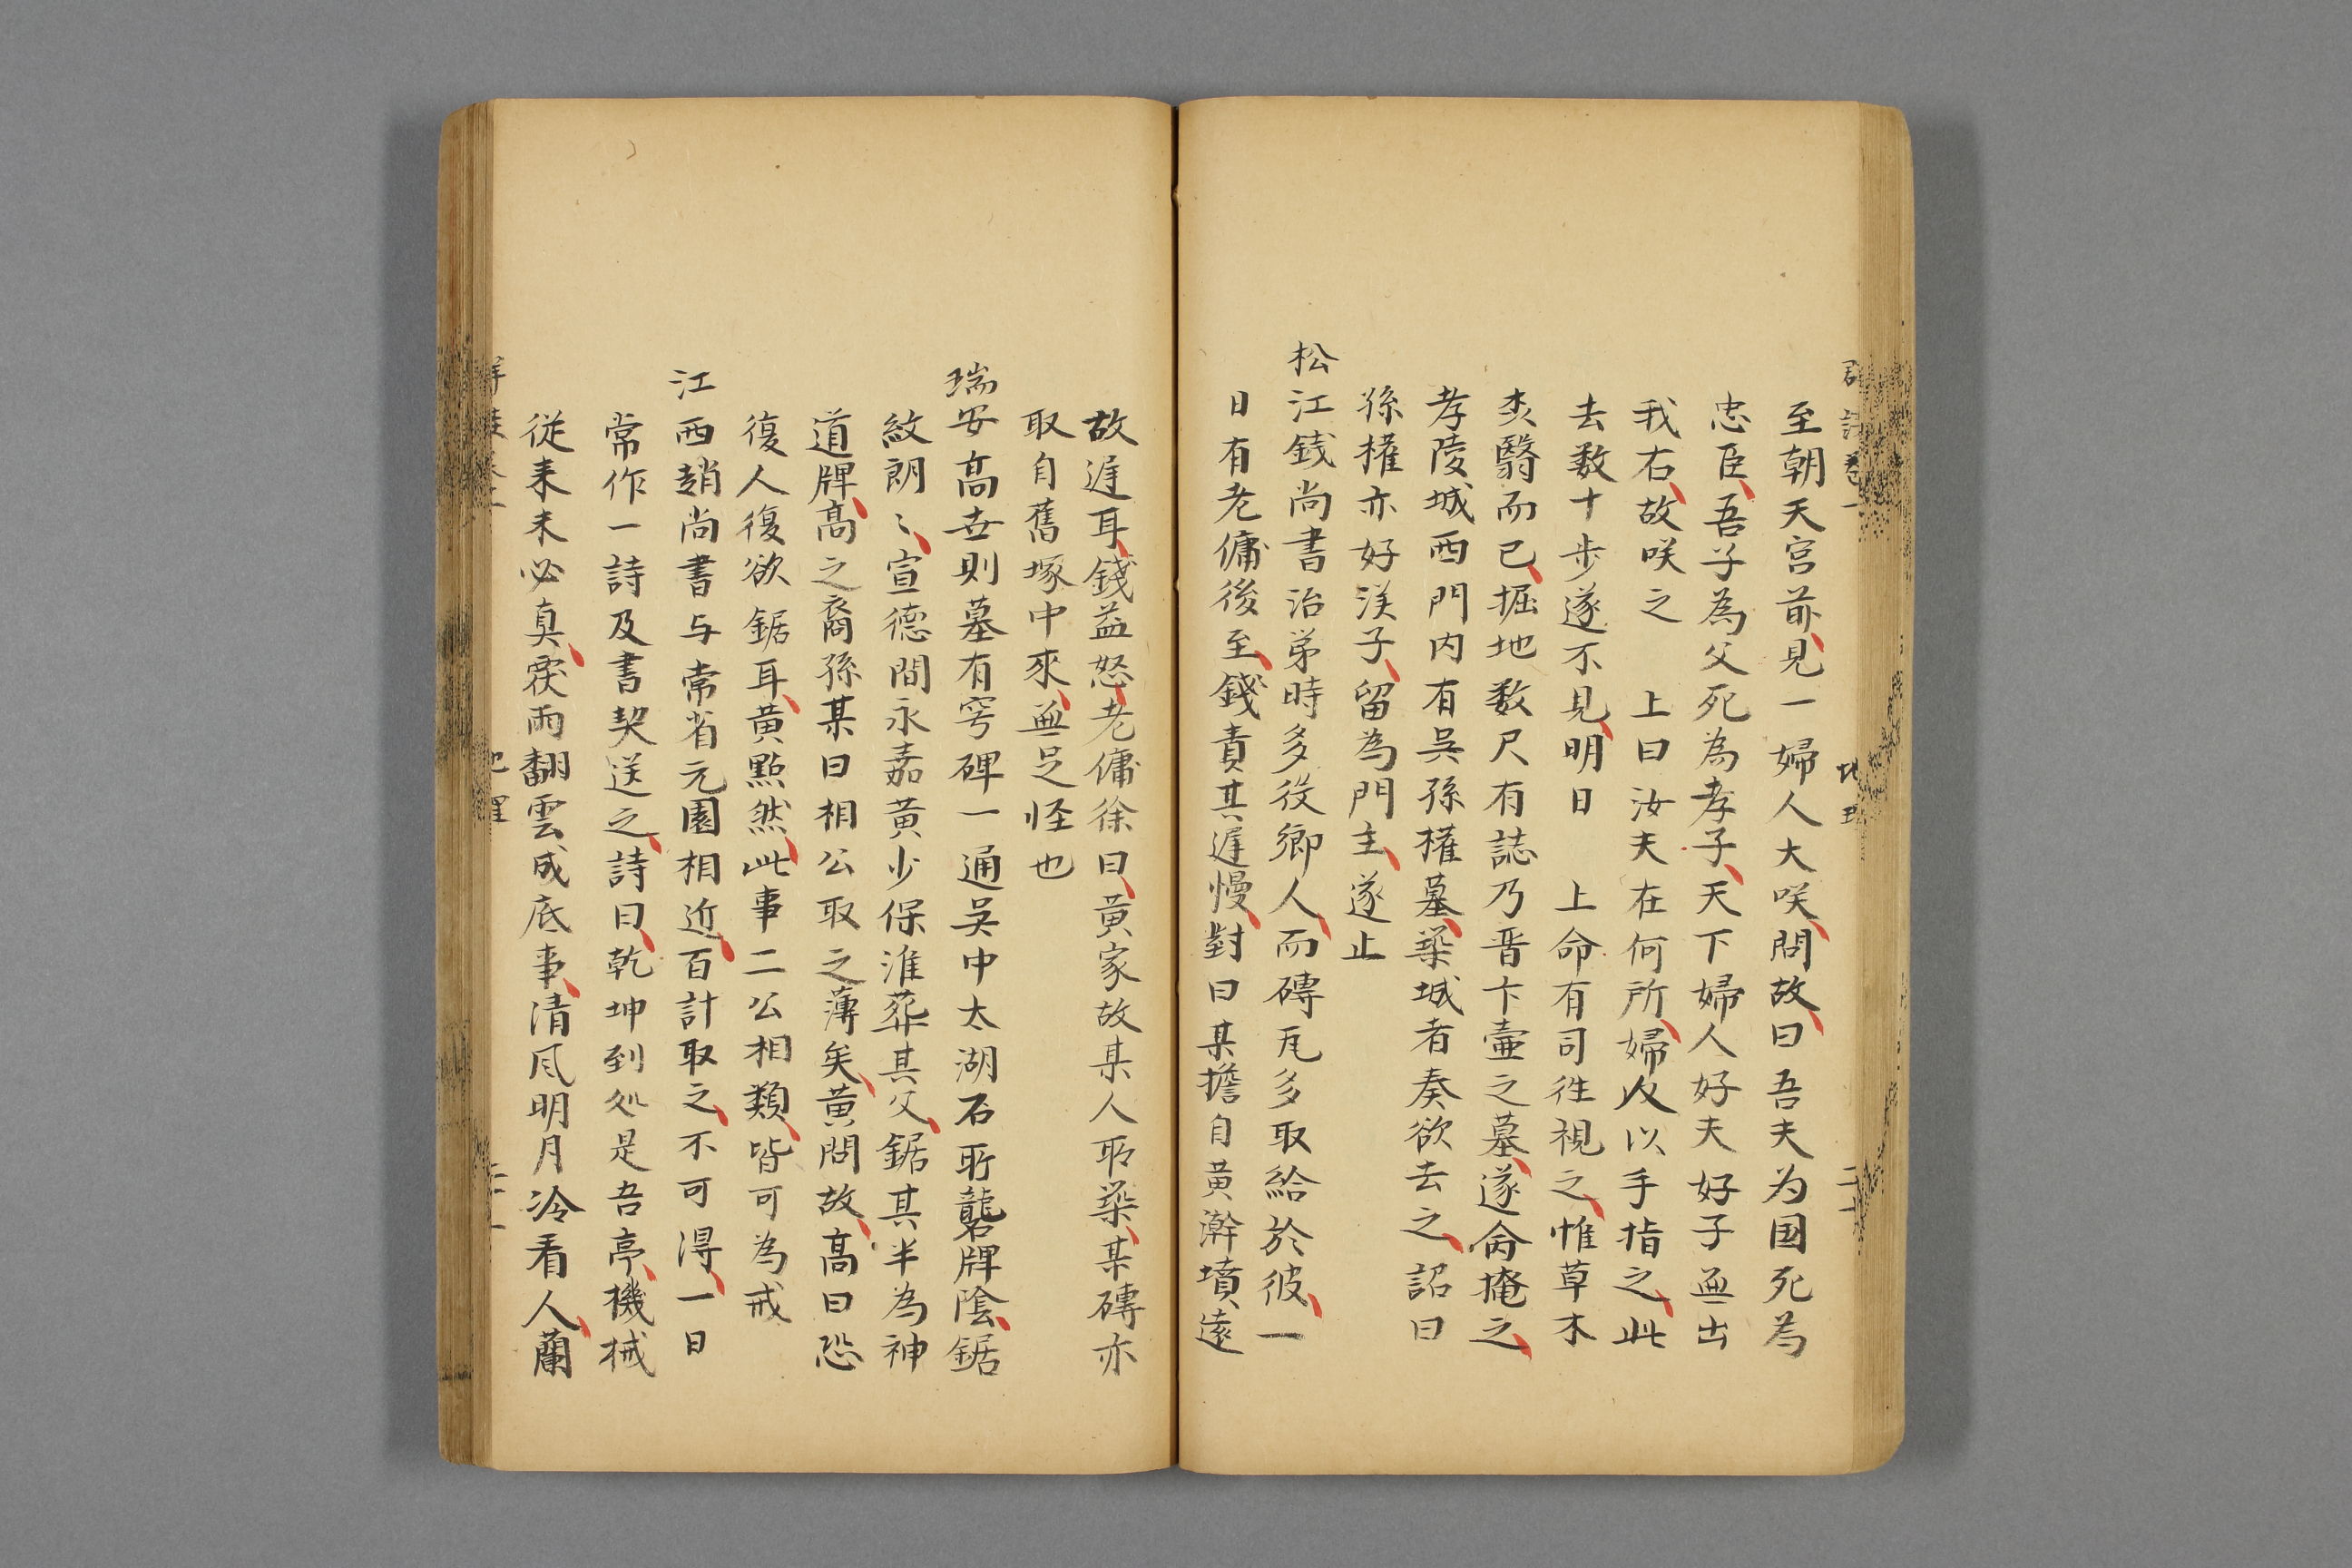 至朝天宮前見一婦人大咲問故曰吾夫为国死為
忠臣吾子為父死為孝子天下婦人好夫好子無出
我右故咲之　上曰汝夫在何所婦人以手指之此
去数十步遂不見明日　上命有司徃視之惟草木
翳而已掘地数尺有誌乃晋卞壷之墓遂命掩之
孝陵城西門内有吴孫權墓築城者奏欲去之詔曰
孫權亦好漢子留為門主遂止
松江錢尚書治第時多役鄉人而磚瓦多取給於彼一
日有老傭後至錢責其遅慢對曰某擔自黄瀚墳遠
故遅耳錢益怒老傭徐曰黄家故某人所築某磚亦
取自舊塚中來無足怪也
瑞安高世則墓有穹碑一通吴中太湖石所礱牌陰鋸
紋朗〻宣德間永嘉黄少保淮葬其父鋸其半為神
道牌高之裔孫某曰相公取之薄矣黄問故高曰恐
復人復欲鋸耳黄默然此事二公相類皆可為戒
江西趙尚書与常省元園相近百計取之不可得一日
常作一詩及書契送之詩曰乾坤到処是吾亭機械
従来未必真覆雨翻雲成底事清風明月冷看人蘭